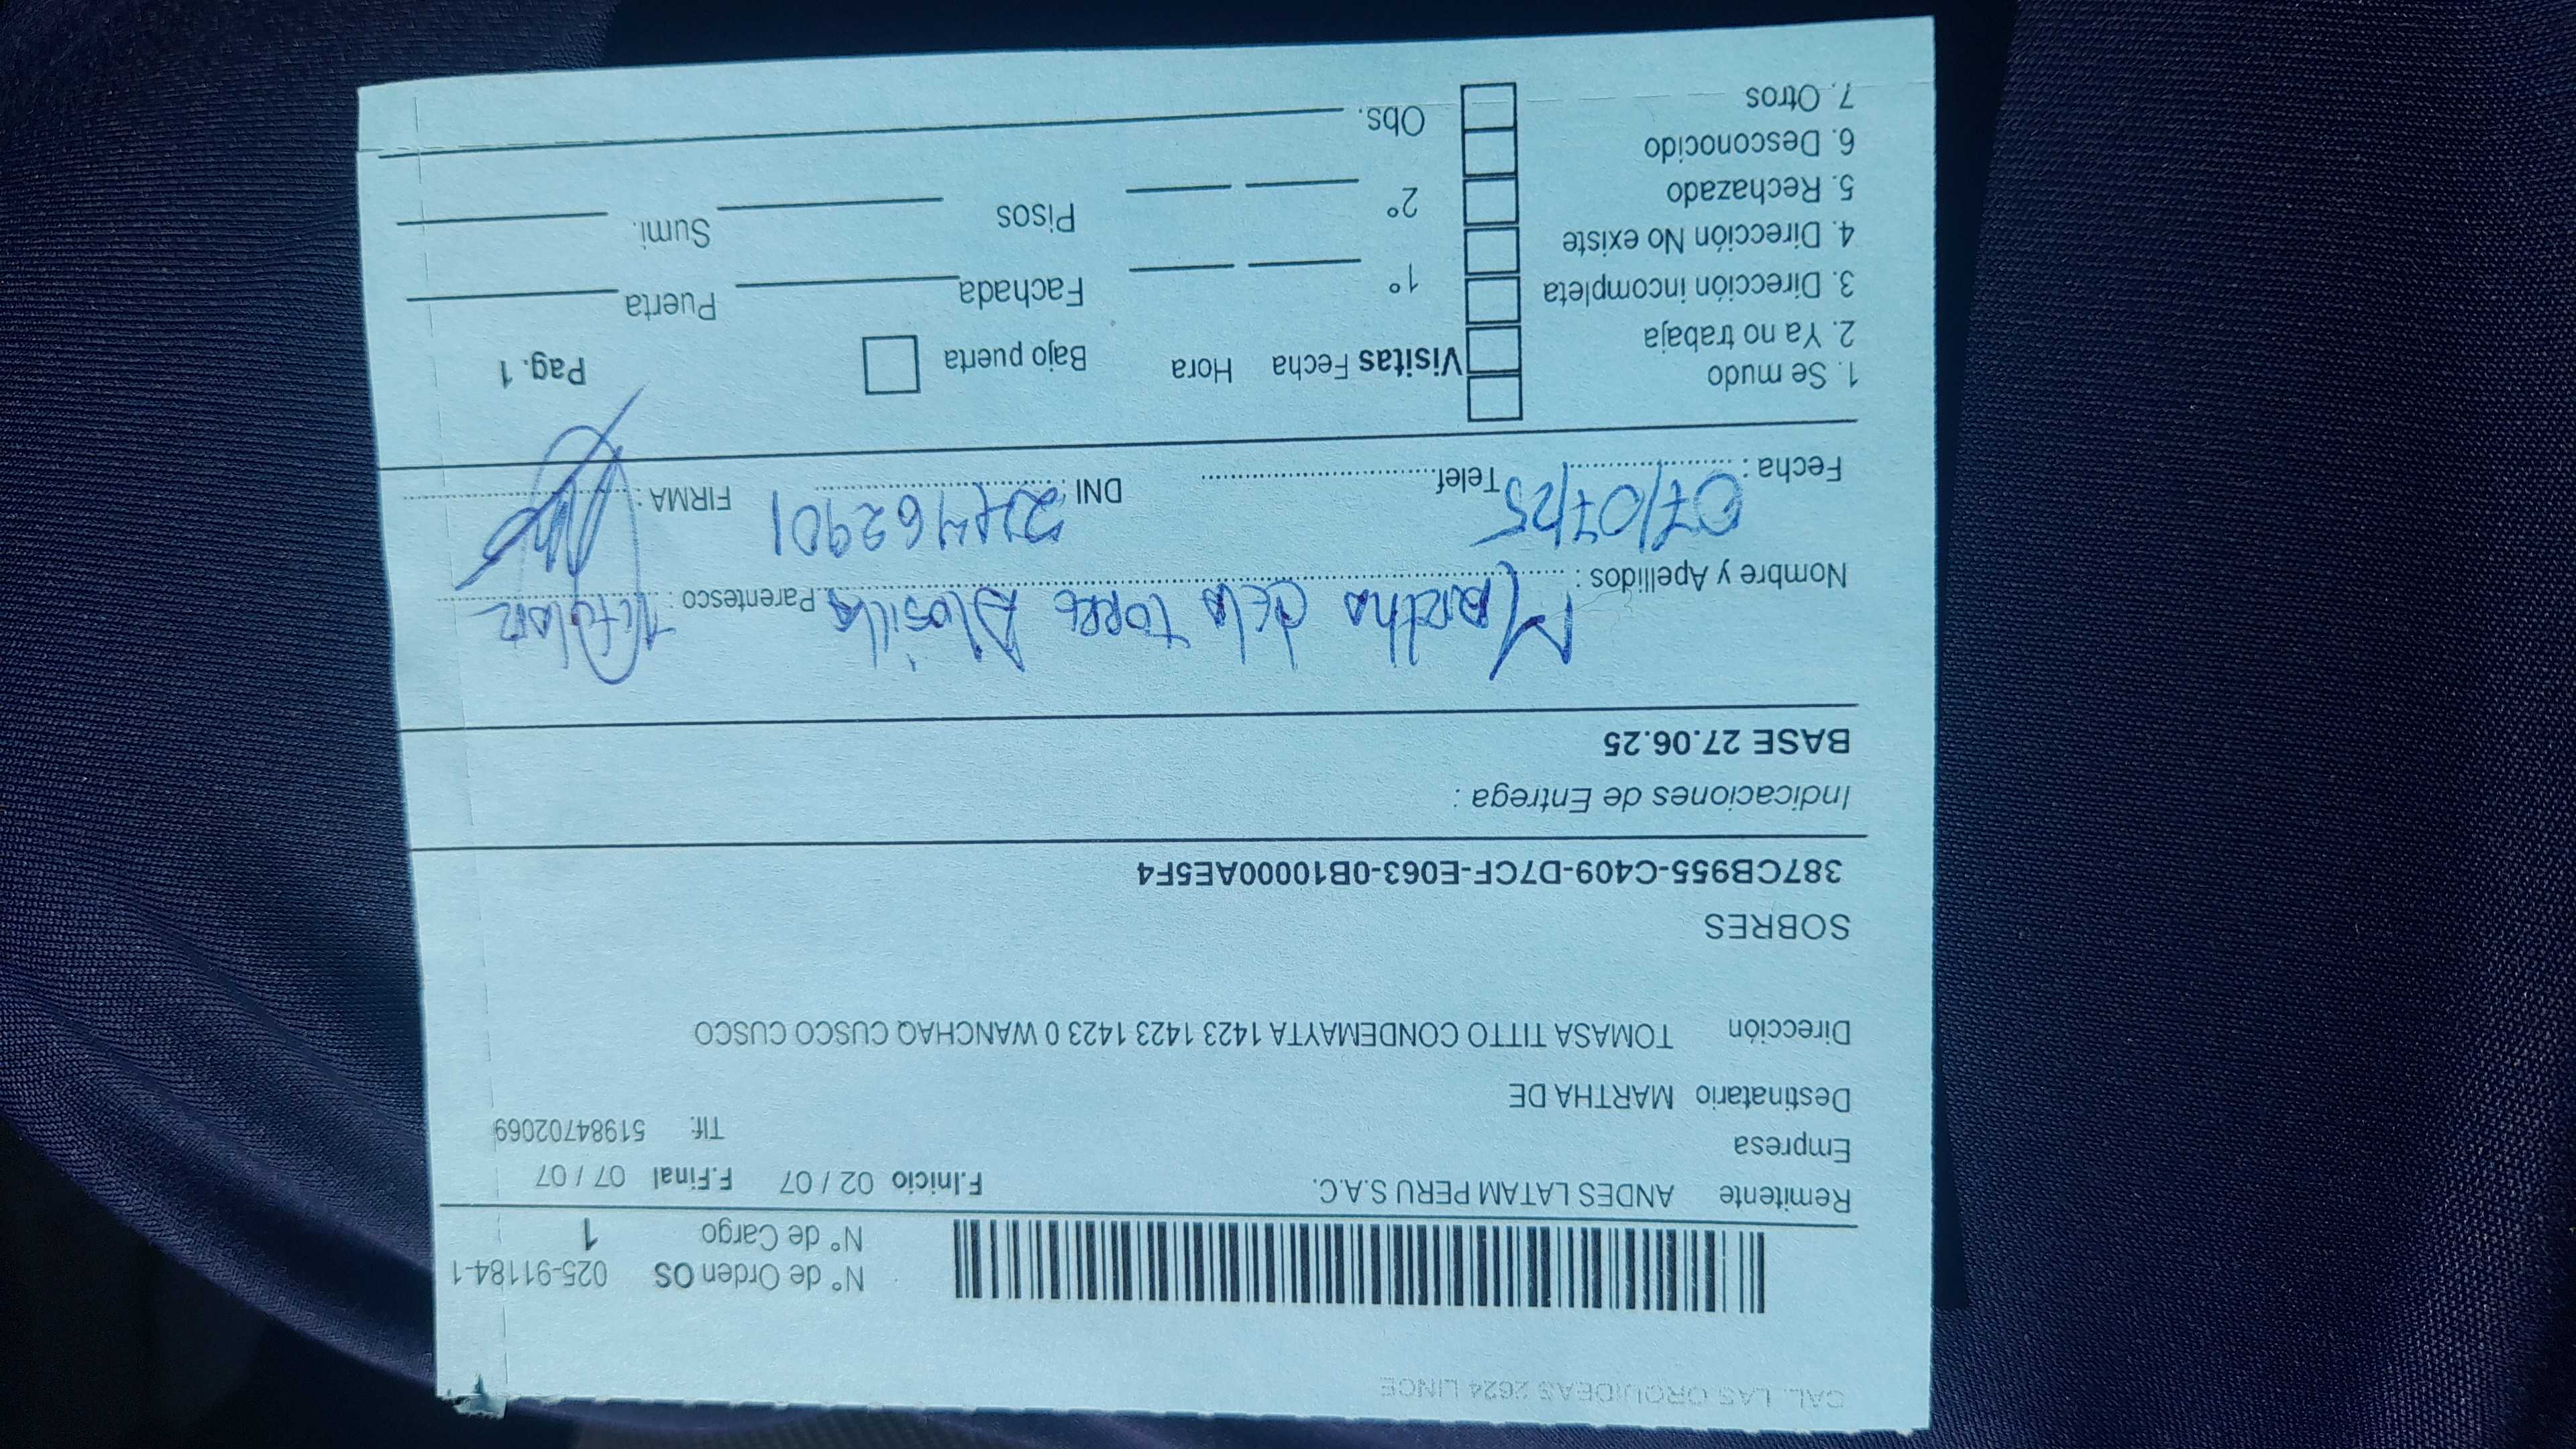 CAL. LAS ORQUIDEAS 2624 LINCE
N° de Orden OS 025-91184-1
N° de Cargo 1
Remitente ANDES LATAM PERU S.A.C. F.Inicio 02 / 07 F.Final 07 / 07
Empresa Tlf: 51984702069
Destinatario MARTHA DE
Dirección TOMASA TITTO CONDEMAYTA 1423 1423 1423 0 WANCHAQ CUSCO CUSCO
SOBRES
387CB955-C409-D7CF-E063-0B10000AE5F4
Indicaciones de Entrega :
BASE 27.06.25
Nombre y Apellidos : Martha de la torre Alosilla Parentesco : Titular
Fecha : 07/07/25 Telef. DNI : FIRMA :
1. Se mudo Visitas Fecha Hora Bajo puerta Pag. 1
2. Ya no trabaja
3. Dirección incompleta 1° Fachada Puerta
4. Dirección No existe
5. Rechazado 2° Pisos Sumi.
6. Desconocido
7. Otros Obs.